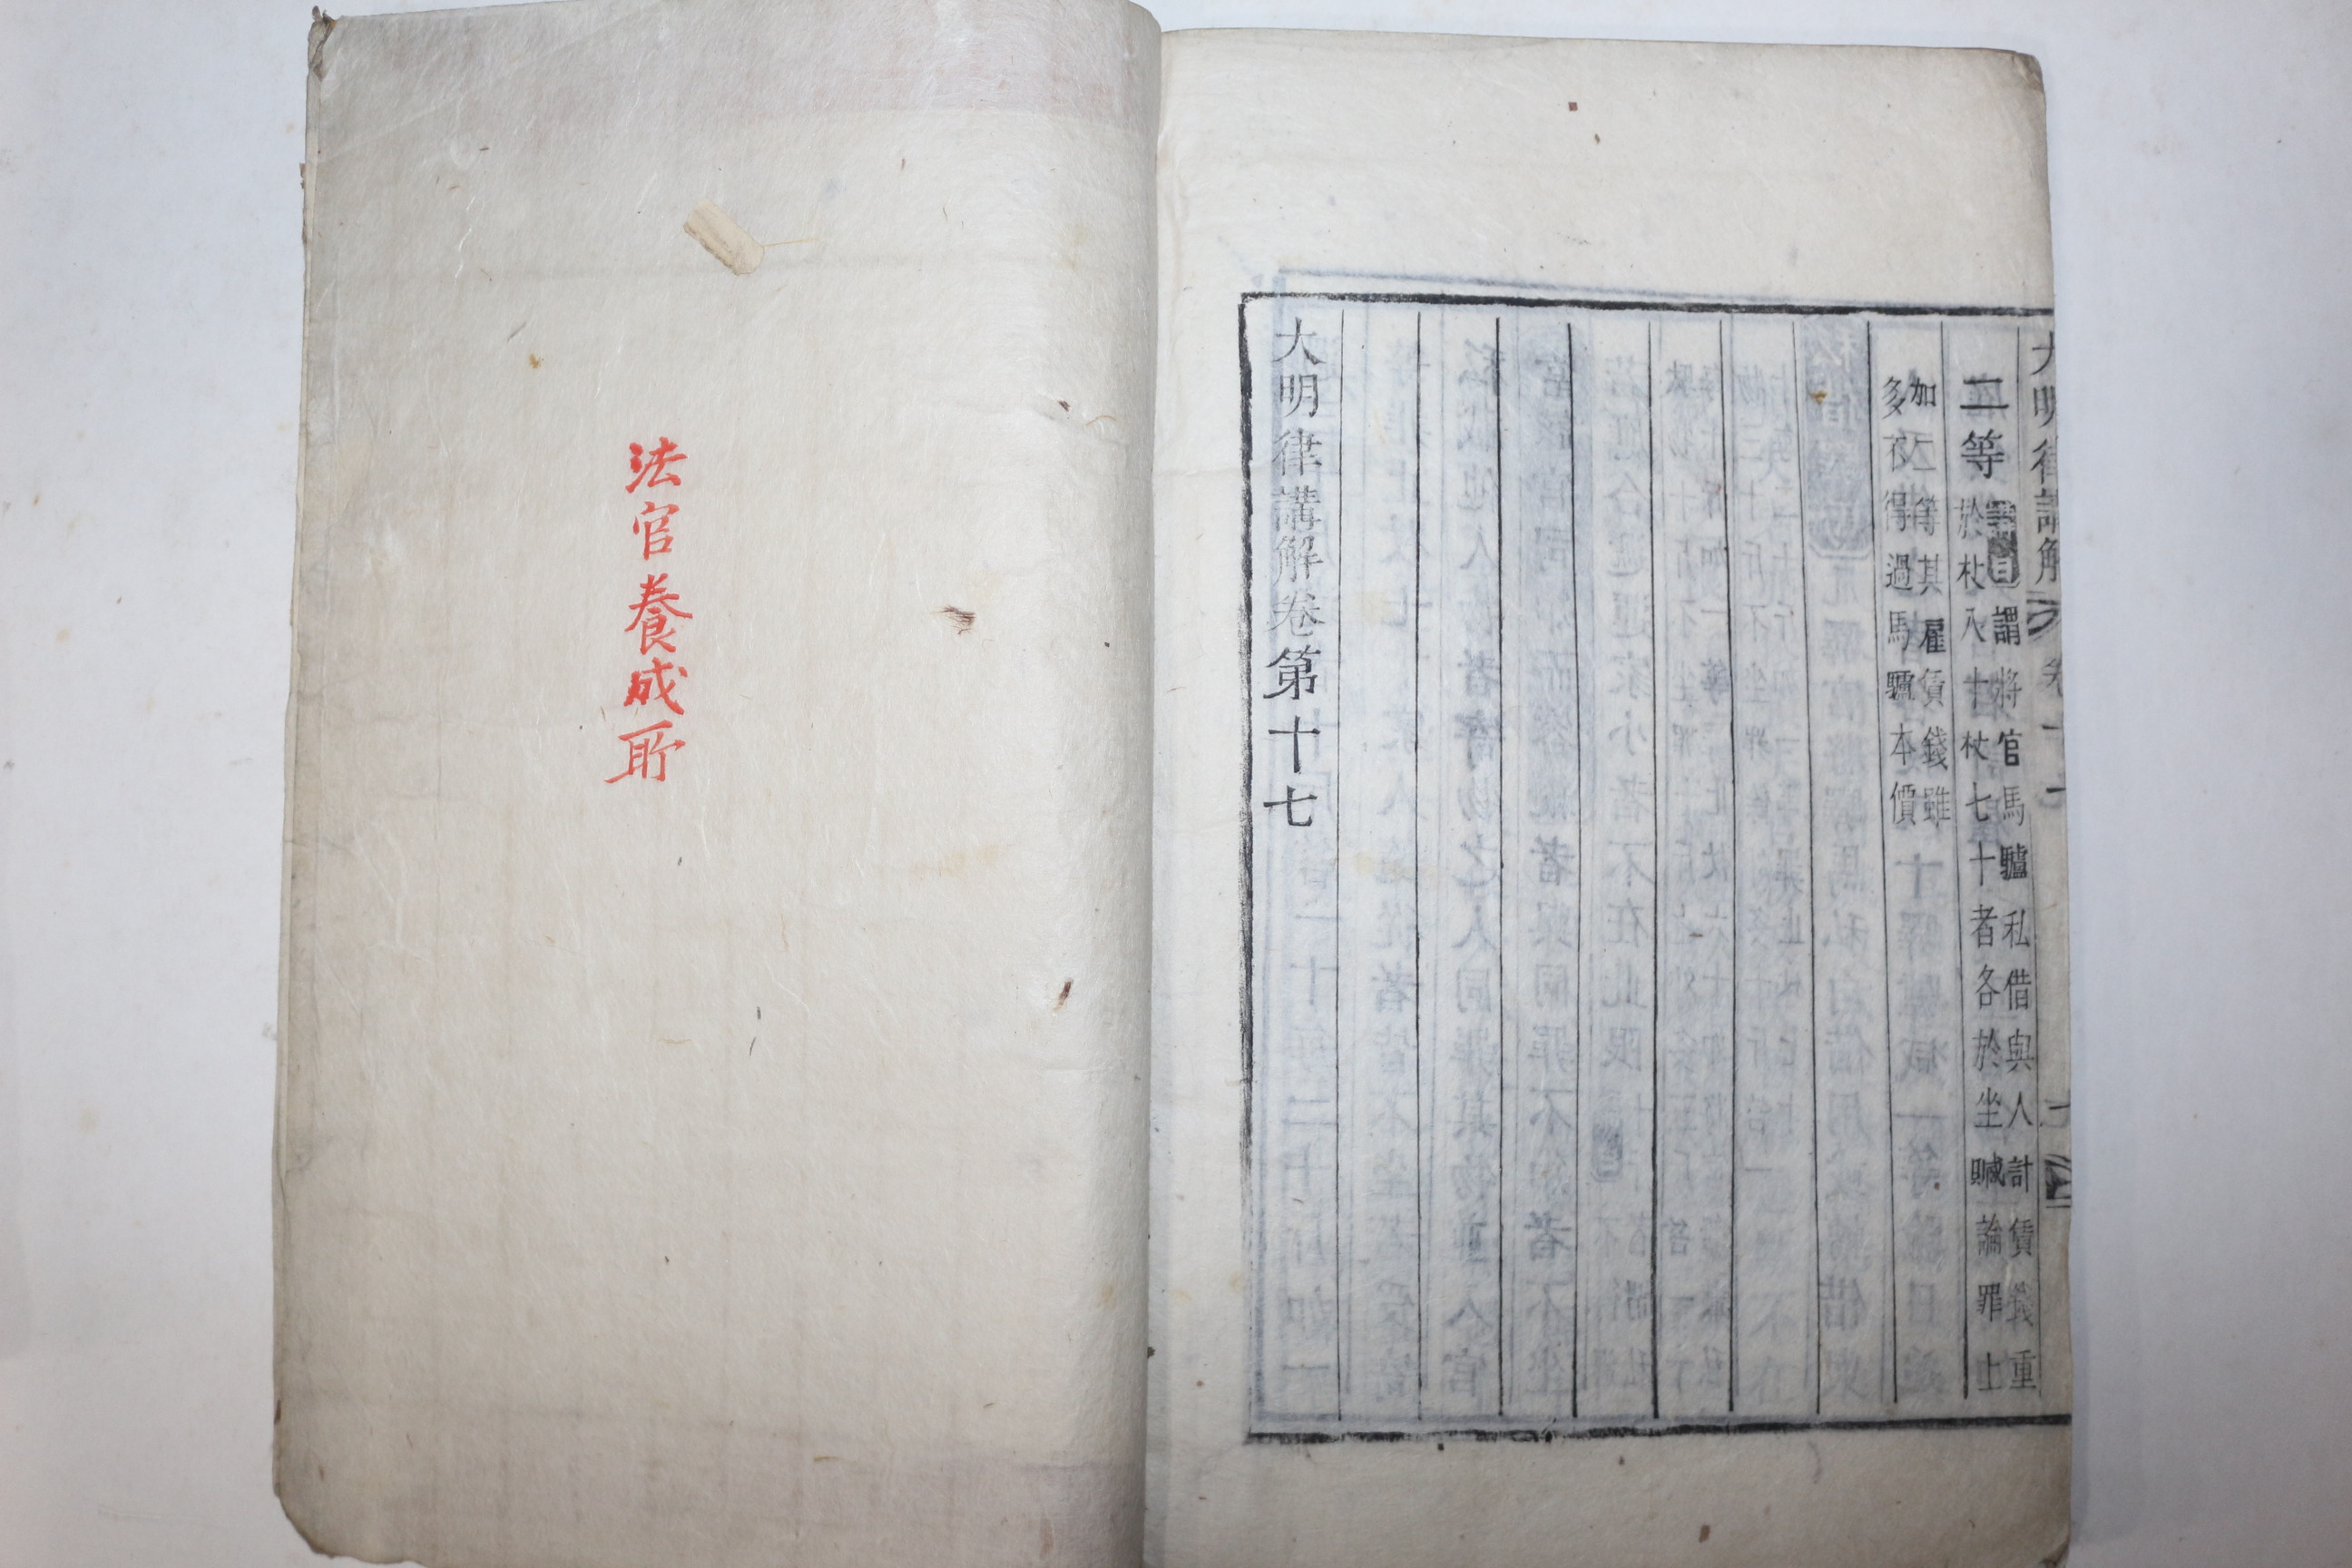 大明律講解 卷十七
二等
講解曰謂將官馬驢私借與人計賃錢重
於杖八十杖七十者各於坐贓論罪上
加二等其雇賃錢雖
多不得過馬驢本價
大明律講解卷第十七
法官養成所